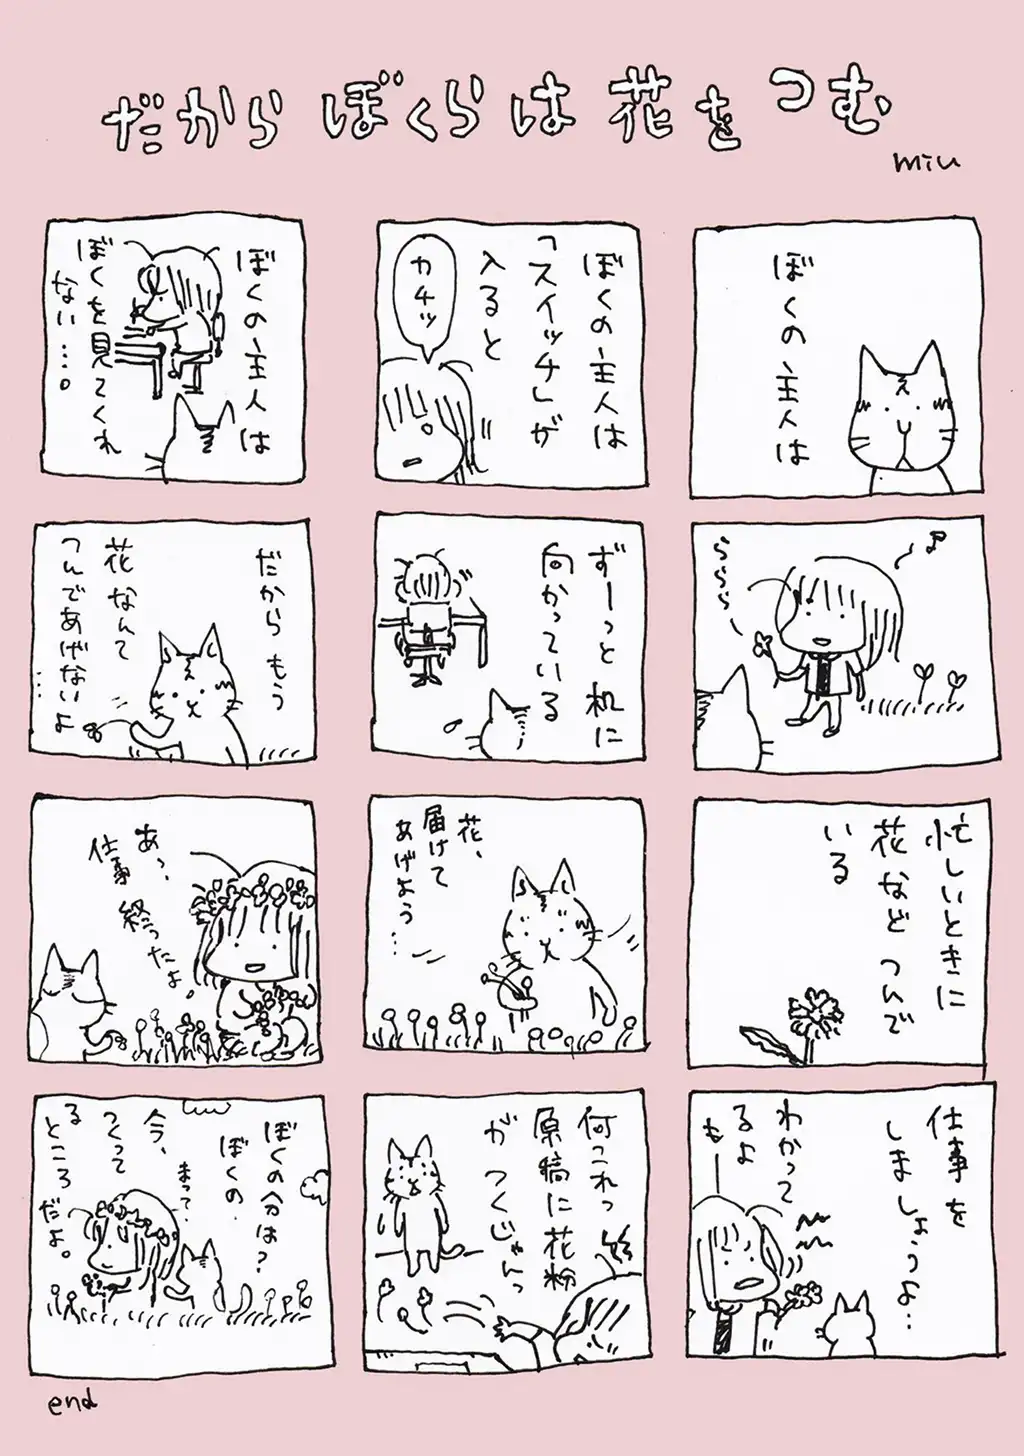 だから ぼくらは 花を つむ
miu
ぼくの主人は
♪
ららら
忙しいときに
花など つんで
いる
仕事を
しましょうよ…
わかって
るよ
もー
ぼくの主人は
「スイッチ」が
入ると
カチッ
ずーっと 机に
向かっている
花、
届けて
あげよう…
何これっ
原稿に花粉
が つくじゃんっ
ぼくの主人は
ぼくを見てくれ
ない…。
だから もう
花なんて
つんであげないよ
…
あっ、
仕事
終ったよ。
ぼくの分は?
ぼくの.
まって.
今、
つくって
る
ところ
だよ。
end